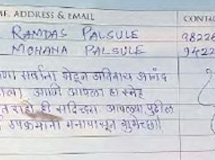 ME, ADDRESS & EMAIL CONTA
RAMDAS PALSULE 98226
MOHANA PALSULE 9422
सर्वांना भेटून अतिशय आनंद
झाला आणि आपला हा स्नेह
राहो ही सदिच्छा आपल्या पुढील
उपक्रमांना मनापासून शुभेच्छा